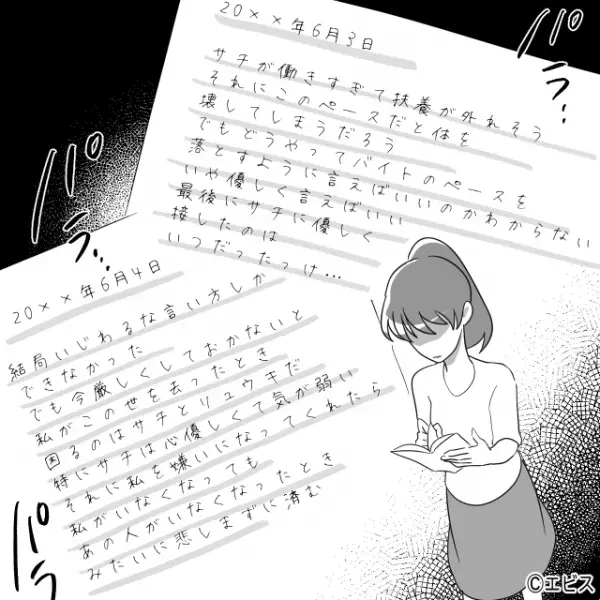 20××年6月3日
サチが働きすぎて扶養が外れそう
それにこのペースだと体を
壊してしまうだろう
でもどうやってバイトのペースを
落とすように言えばいいのかわからない
いや優しく言えばいい
最後にサチに優しく
接したのは
いつだったっけ…
パラ…
パラ…
20××年6月4日
結局いじわるな言い方しか
できなかった
でも今厳しくしておかないと
私がこの世を去ったとき
困るのはサチとリュウキだ
特にサチは心優しくて気が弱い
それに私を嫌いになってくれたら
私がいなくなっても
あの人がいなくなったとき
みたいに悲しまずに済む
パラ
©エビス